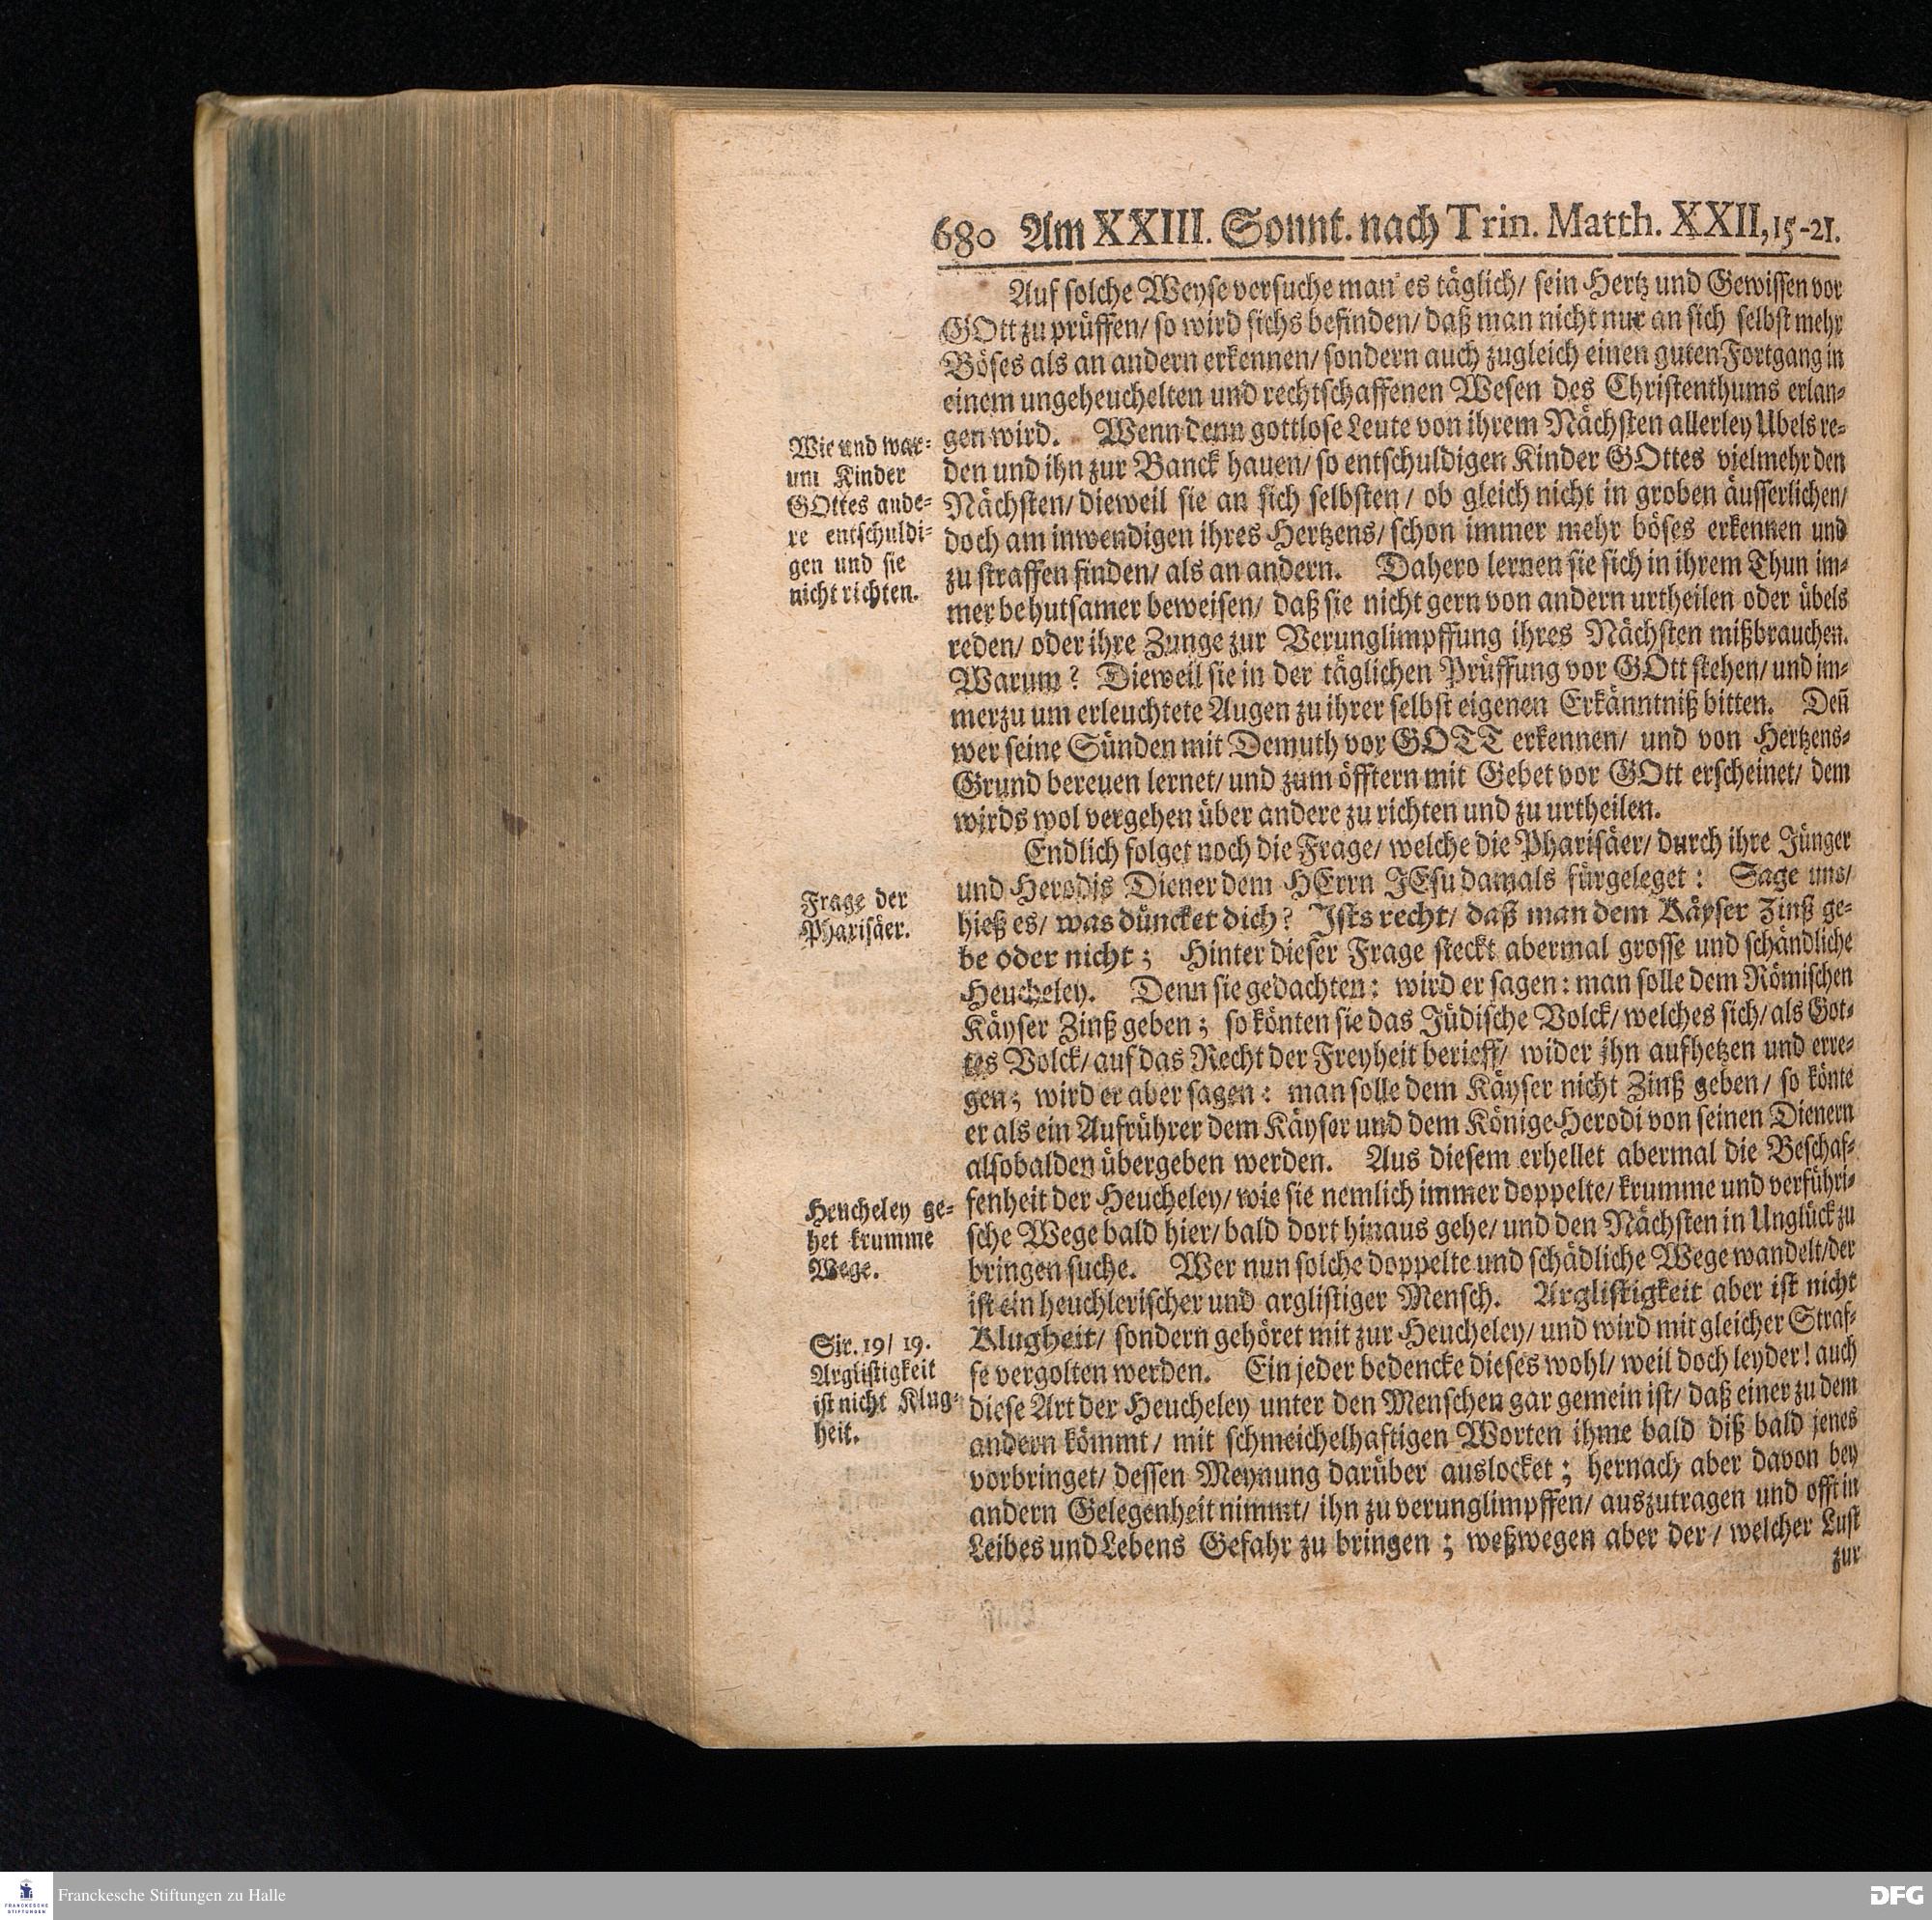 680 Am XXIII. Sonnt. nach Trin. Matth. XXII, 15-21.
Auf solche Weyse versuche man es täglich/ sein Hertz und Gewissen vor
GOtt zu prüffen/ so wird sichs befinden/ daß man nicht nur an sich selbst mehr
Böses als an andern erkennen/ sondern auch zugleich einen guten Fortgang in
einem ungeheuchelten und rechtschaffenen Wesen des Christenthums erlan-
gen wird. Wenn denn gottlose Leute von ihrem Nächsten allerley Ubels re-
den und ihn zur Banck hauen/ so entschuldigen Kinder GOttes vielmehr den
Nächsten/ dieweil sie an sich selbsten/ ob gleich nicht in groben äusserlichen/
doch am inwendigen ihres Hertzens/ schon immer mehr böses erkennen und
zu straffen finden/ als an andern. Dahero lernen sie sich in ihrem Thun im-
mer behutsamer beweisen/ daß sie nicht gern von andern urtheilen oder übels
reden/ oder ihre Zunge zur Verunglimpffung ihres Nächsten mißbrauchen.
Warum? Dieweil sie in der täglichen Prüffung vor GOtt stehen/ und im-
merzu um erleuchtete Augen zu ihrer selbst eigenen Erkänntniß bitten. Deñ
wer seine Sünden mit Demuth vor GOTT erkennen/ und von Hertzens-
Grund bereuen lernet/ und zum öfftern mit Gebet vor GOtt erscheinet/ dem
wirds wol vergehen über andere zu richten und zu urtheilen.
Wie und war-
um Kinder
GOttes ande-
re entschuldi-
gen und sie
nicht richten.
Endlich folget noch die Frage/ welche die Pharisäer/ durch ihre Jünger
und Herodis Diener dem HErrn JEsu damals fürgeleget: Sage uns/
hieß es/ was düncket dich? Ists recht/ daß man dem Käyser Zinß ge-
be oder nicht; Hinter dieser Frage steckt abermal grosse und schändliche
Heucheley. Denn sie gedachten: wird er sagen: man solle dem Römischen
Käyser Zinß geben; so könten sie das Jüdische Volck/ welches sich/ als Got-
tes Volck/ auf das Recht der Freyheit berieff/ wider ihn aufhetzen und erre-
gen; wird er aber sagen: man solle dem Käyser nicht Zinß geben/ so könte
er als ein Aufrührer dem Käyser und dem Könige Herodi von seinen Dienern
alsobalden übergeben werden. Aus diesem erhellet abermal die Beschaf-
fenheit der Heucheley/ wie sie nemlich immer doppelte/ krumme und verführi-
sche Wege bald hier/ bald dort hinaus gehe/ und den Nächsten in Unglück zu
bringen suche. Wer nun solche doppelte und schädliche Wege wandelt/ der
ist ein heuchlerischer und arglistiger Mensch. Arglistigkeit aber ist nicht
Klugheit/ sondern gehöret mit zur Heucheley/ und wird mit gleicher Straf-
fe vergolten werden. Ein jeder bedencke dieses wohl/ weil doch leyder! auch
diese Art der Heucheley unter den Menschen gar gemein ist/ daß einer zu dem
andern kömmt/ mit schmeichelhaftigen Worten ihme bald diß bald jenes
vorbringet/ dessen Meynung darüber auslocket; hernach aber davon bey
andern Gelegenheit nimmt/ ihn zu verunglimpffen/ auszutragen und offt in
Leibes und Lebens Gefahr zu bringen; weßwegen aber der/ welcher Lust
zur
Frage der
Pharisäer.
Heucheley ge-
het krumme
Wege.
Sir. 19/ 19.
Arglistigkeit
ist nicht Klug-
heit.
FRANCKESCHE
STIFTUNGEN
Franckesche Stiftungen zu Halle
DFG